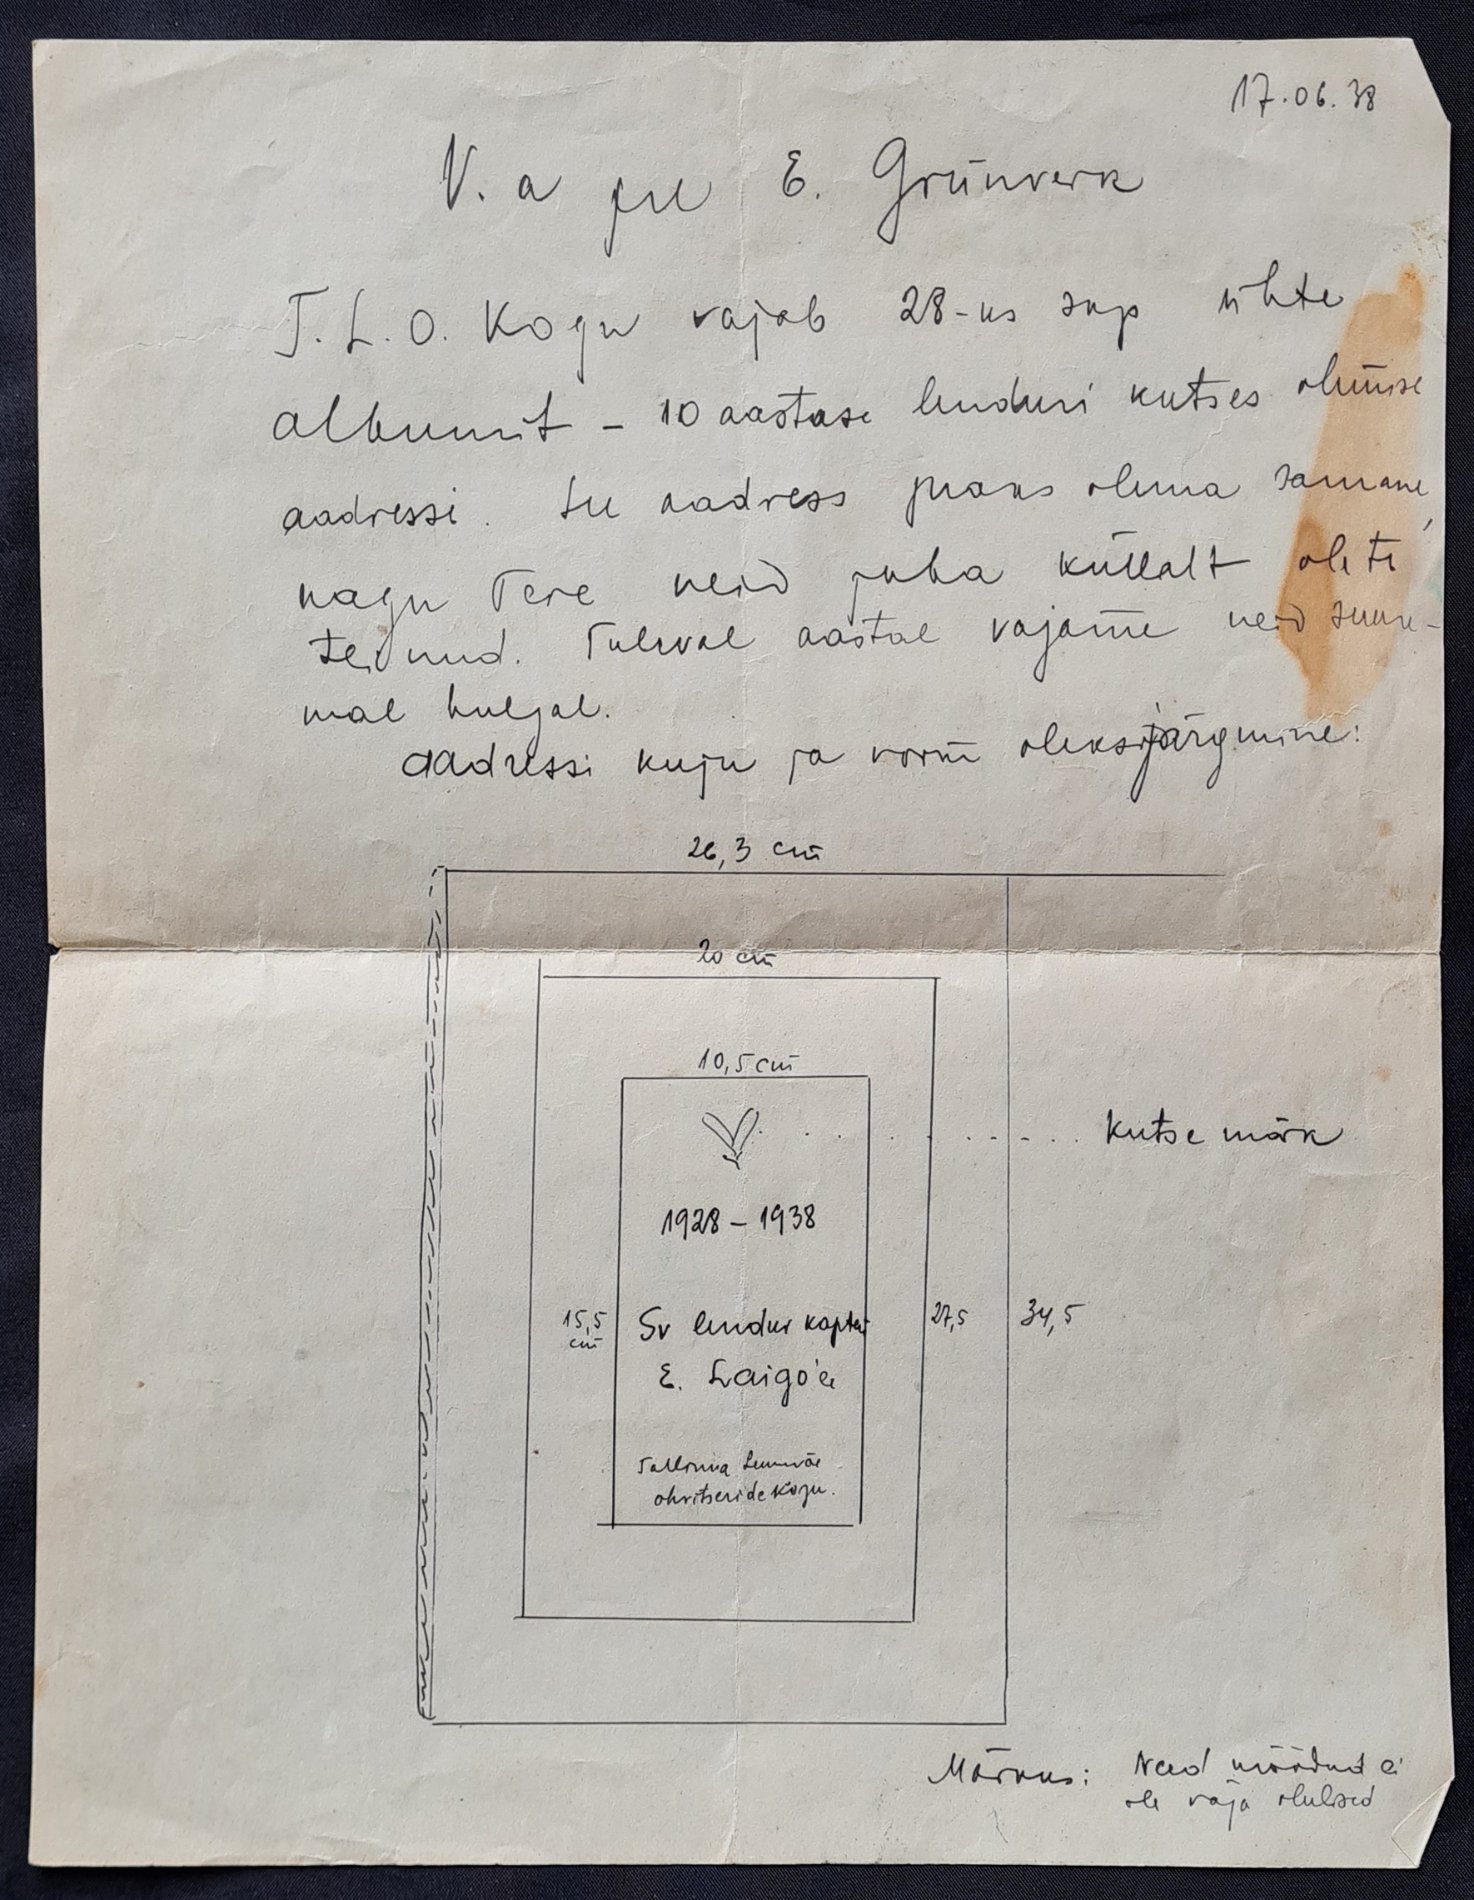 17.06.38
V. a prl E. Grünverk
T. L. O. Kogu vajab 28-ks sep ühte
albumit – 10 aastase lenduri kutses olemise
aadressi. See aadress peaks olema samane,
nagu Teie neid juba küllalt olete
teinud. Tuleval aastal vajame neid suure-
mal hulgal.
Aadressi kuju ja vorm oleks järgmine:
26,3 cm
20 cm
10,5 cm
Kutse märk
1928 – 1938
15,5 cm
Sv lendur kapten
27,5
34,5
E. Laigo'le
Tallinna Lennuväe
ohvitseride Kogu.
Märkus: Need mõõdud ei
ole väga olulised